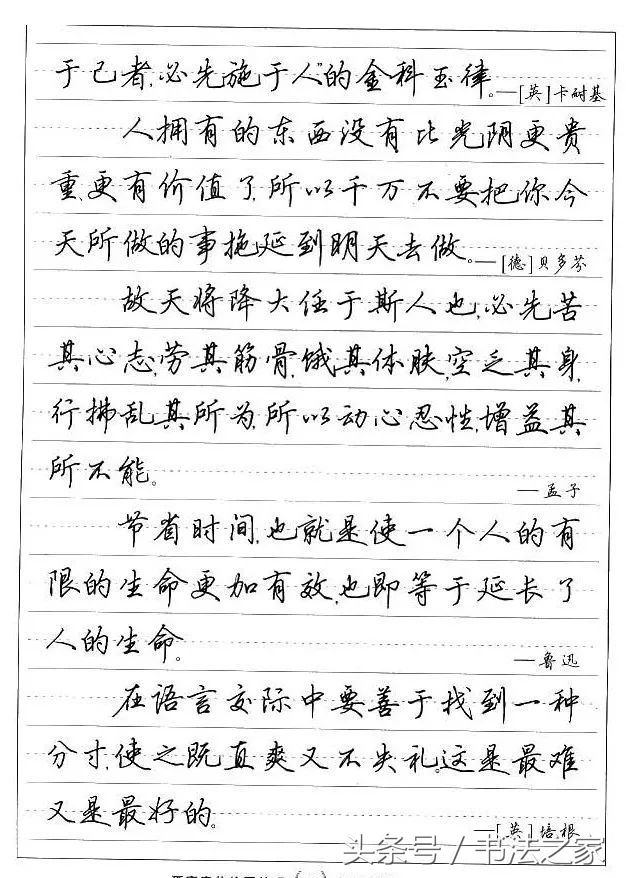 于己者,必先施于人”的金科玉律。—[英]卡耐基
人拥有的东西没有比光阴更贵
重,更有价值了,所以千万不要把你今
天所做的事拖延到明天去做。—[德]贝多芬
故天将降大任于斯人也,必先苦
其心志,劳其筋骨,饿其体肤,空乏其身,
行拂乱其所为,所以动心忍性,增益其
所不能。
—孟子
节省时间,也就是使一个人的有
限的生命更加有效,也即等于延长了
人的生命。
—鲁迅
在语言交际中要善于找到一种
分寸,使之既直爽又不失礼。这是最难
又是最好的。
—[英]培根
头条号/书法之家